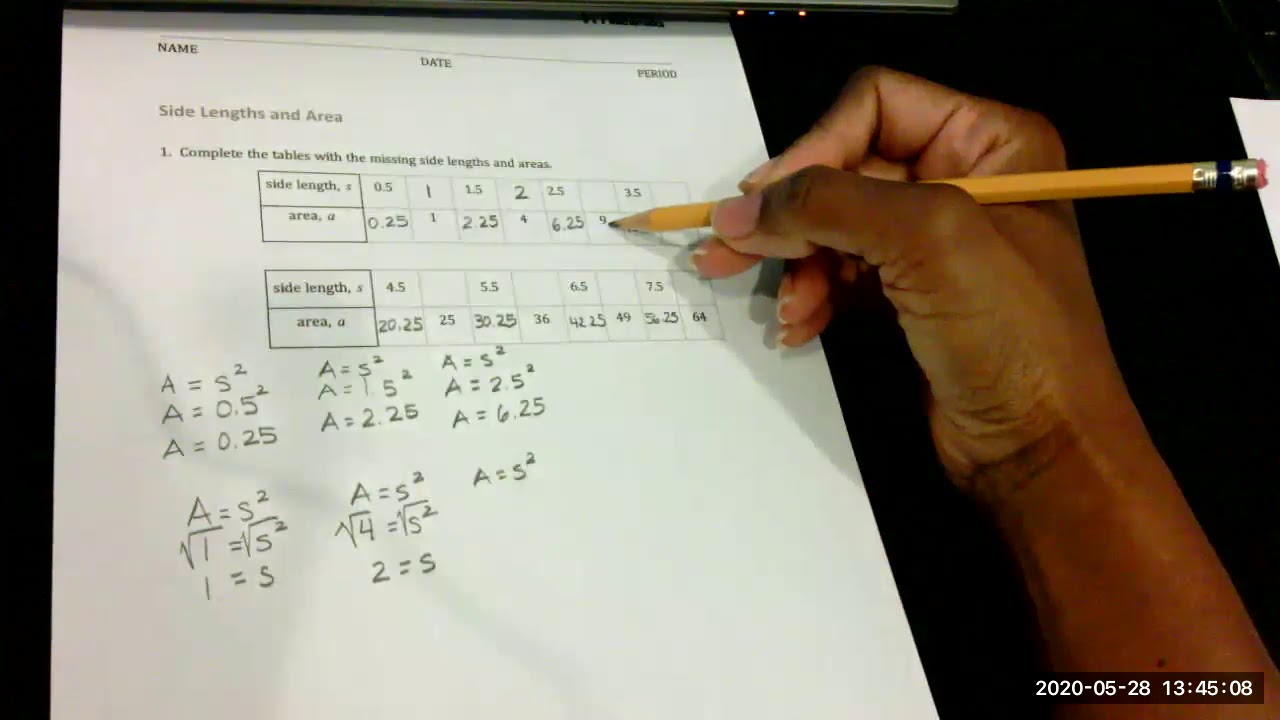 NAME
DATE
PERIOD
Side Lengths and Area
1. Complete the tables with the missing side lengths and areas.
side length, s 0.5 1 1.5 2 2.5 3.5
area, a 0.25 1 2.25 4 6.25 9
side length, s 4.5 5.5 6.5 7.5
area, a 20.25 25 30.25 36 42.25 49 56.25 64
A = s² A = s² A = s²
A = 0.5² A = 1.5² A = 2.5²
A = 0.25 A = 2.25 A = 6.25
A = s² A = s² A = s²
√1 = √s² √4 = √s²
1 = s 2 = s
2020-05-28 13:45:08